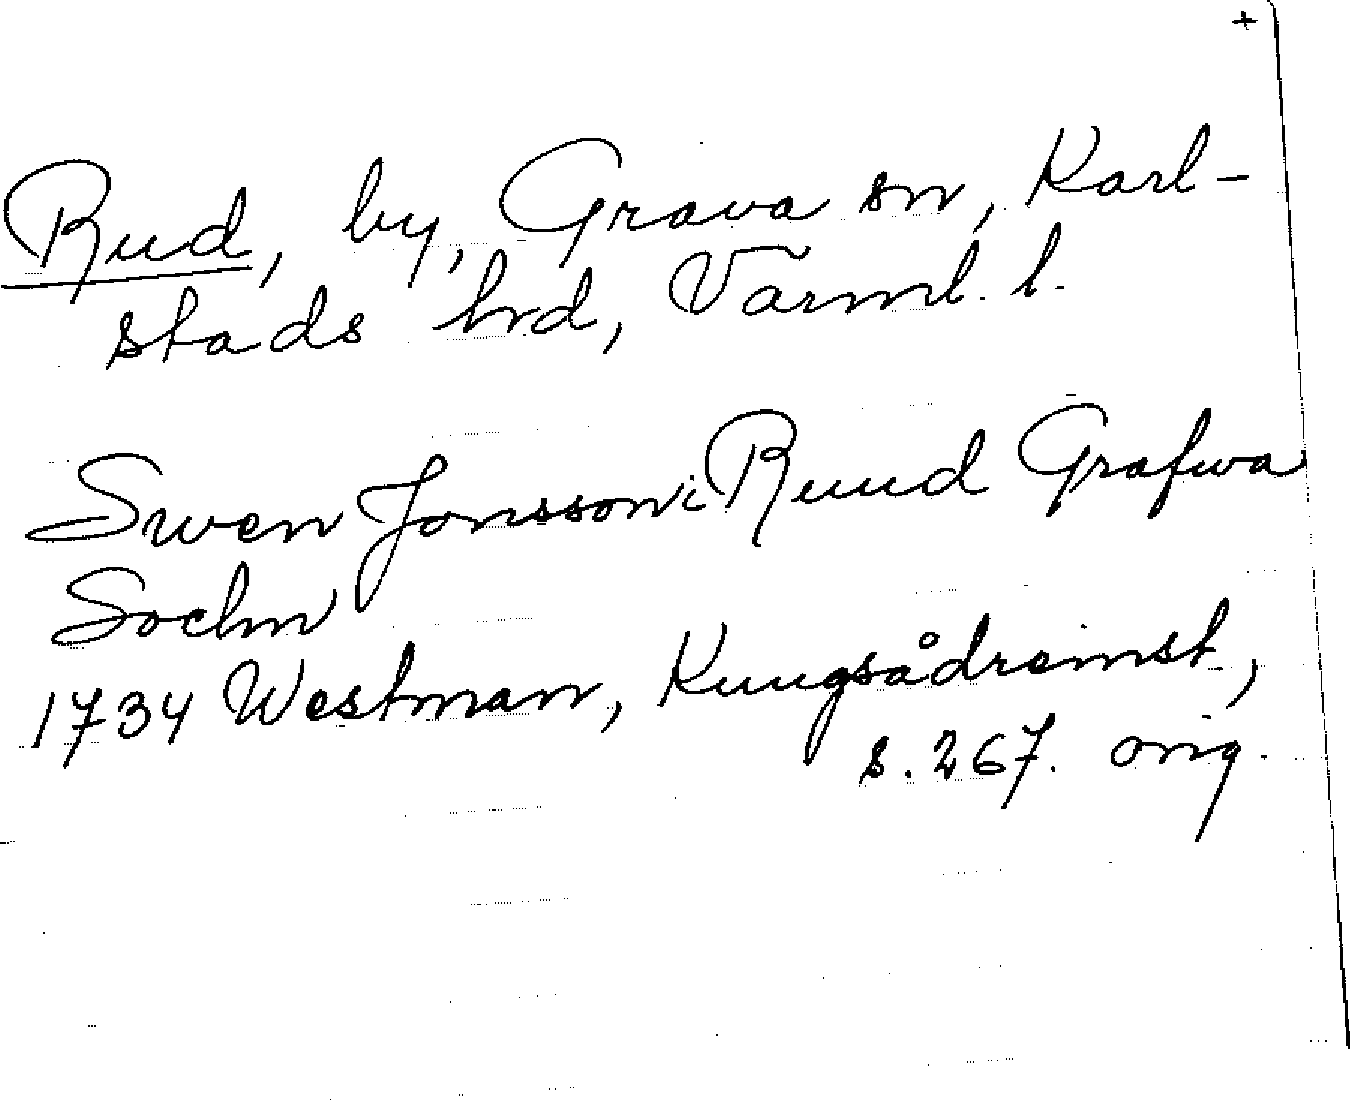 +
Rud, by, Grava sn, Karl-
stads hrd, Värml. l.
Swen Jonsson i Ruud Grafwa
Sochn
1734 Westman, Kungsådreinst,
s. 267. orig.